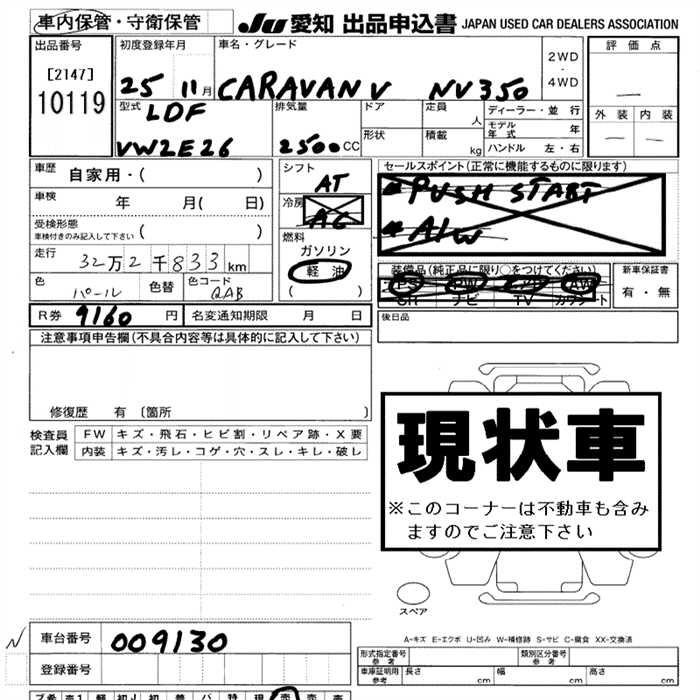 車内保管・守衛保管 JU 愛知 出品申込書 JAPAN USED CAR DEALERS ASSOCIATION
出品番号
[2147]
10119
初度登録年月
25 11月
車名・グレード
CARAVAN V NV350
2WD
・
4WD
評価点
―
型式
LDF
VW2E26
排気量
2500CC
ドア
形状
定員
人
積載
kg
ディーラー・並行
モデル年式 年
ハンドル 左・右
外装 内装
― ―
車歴 自家用・( )
車検 年 月( 日)
受検形態
車検付きのみ記入して下さい ( )
走行 32万2千833km
色 パール 色替 色コード QAB
シフト
AT
冷房
AC
燃料
ガソリン
軽油
( )
セールスポイント(正常に機能するものに限ります)
PUSH START
A/W
装備品(純正品に限り○をつけてください)
PS PW AW
SR ナビ TV カワシート
新車保証書
有・無
R券 9160円 名変通知期限 月 日
後日品
注意事項申告欄(不具合内容等は具体的に記入して下さい)
修復歴 有 〔箇所 〕
検査員記入欄
FW キズ・飛石・ヒビ割・リペア跡・X要
内装 キズ・汚レ・コゲ・穴・スレ・キレ・破レ
現状車
※このコーナーは不動車も含み
ますのでご注意下さい
スペア
A-キズ E-エクボ U-凹み W-補修跡 S-サビ C-腐食 XX-交換済
N
車台番号 009130
登録番号
形式指定番号
参考
類別区分番号
参考
車庫証明用
参考
長さ cm 幅 cm 高さ cm